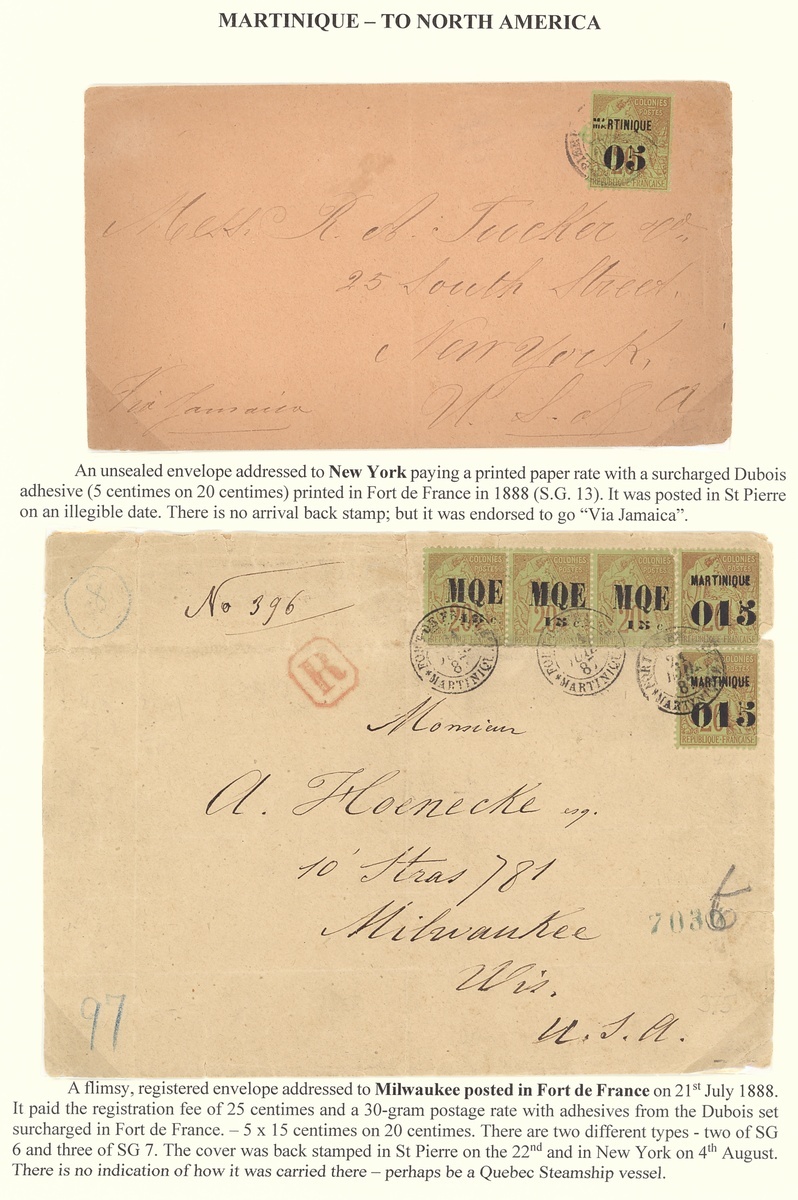 MARTINIQUE – TO NORTH AMERICA
COLONIES
POSTES
MARTINIQUE
05
REPUBLIQUE FRANÇAISE
Mess. R. A. Tucker & Co
25 South Street,
New York,
Via Jamaica
U. S. of A
An unsealed envelope addressed to New York paying a printed paper rate with a surcharged Dubois
adhesive (5 centimes on 20 centimes) printed in Fort de France in 1888 (S.G. 13). It was posted in St Pierre
on an illegible date. There is no arrival back stamp; but it was endorsed to go “Via Jamaica”.
8
No 396
R
COLONIES COLONIES COLONIES COLONIES
POSTES
MQE MQE MQE MARTINIQUE
15 c. 15 c. 015
FORT-DE-FRANCE
MARTINIQUE MARTINIQUE
MARTINIQUE
015
20
REPUBLIQUE FRANÇAISE
Monsieur
A. Hoenecke esq.
10' Stras 781
Milwaukee
Wis.
U. S. A.
703
97
A flimsy, registered envelope addressed to Milwaukee posted in Fort de France on 21st July 1888.
It paid the registration fee of 25 centimes and a 30-gram postage rate with adhesives from the Dubois set
surcharged in Fort de France. – 5 x 15 centimes on 20 centimes. There are two different types - two of SG
6 and three of SG 7. The cover was back stamped in St Pierre on the 22nd and in New York on 4th August.
There is no indication of how it was carried there – perhaps be a Quebec Steamship vessel.